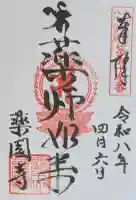 奉拝
令和八年
四月六日
薬師如来
薬園寺